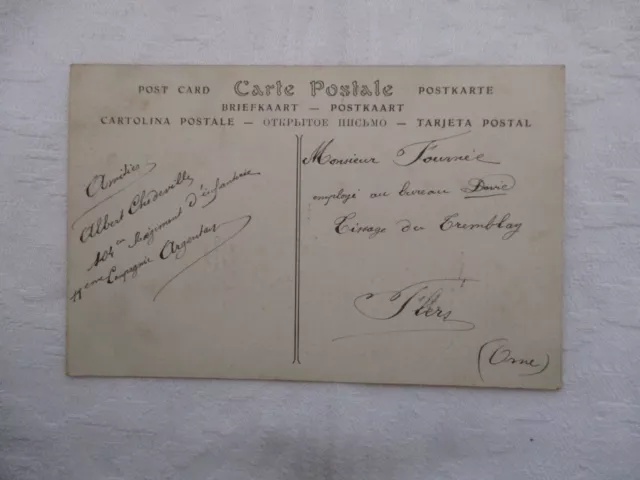 POST CARD Carte Postale POSTKARTE
BRIEFKAART — POSTKAART
CARTOLINA POSTALE — ОТКРЫТОЕ ПИСЬМО — TARJETA POSTAL
Amitiés
Albert Chedeville
104 em Régiment d'infanterie
11 eme Compagnie Argentan
Monsieur Fournée
employé au bureau
Tissage du Tremblay
Flers
(Orne)